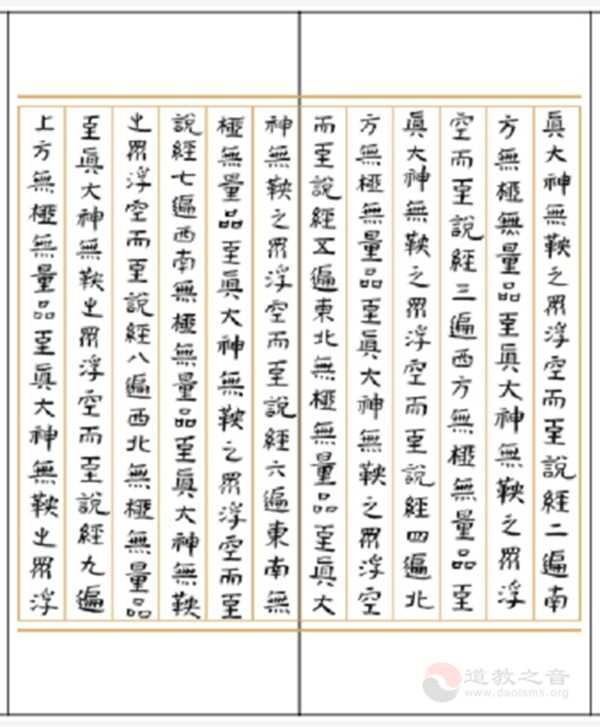 眞大神無鞅之眾浮空而至說經二遍南
方無極無量品至眞大神無鞅之眾浮
空而至說經三遍西方無極無量品至
眞大神無鞅之眾浮空而至說經四遍北
方無極無量品至眞大神無鞅之眾浮空
而至說經五遍東北無極無量品至眞大
神無鞅之眾浮空而至說經六遍東南無
極無量品至眞大神無鞅之眾浮空而至
說經七遍西南無極無量品至眞大神無鞅
之眾浮空而至說經八遍西北無極無量品
至眞大神無鞅之眾浮空而至說經九遍
上方無極無量品至眞大神無鞅之眾浮
道教之音
www.daoisms.org